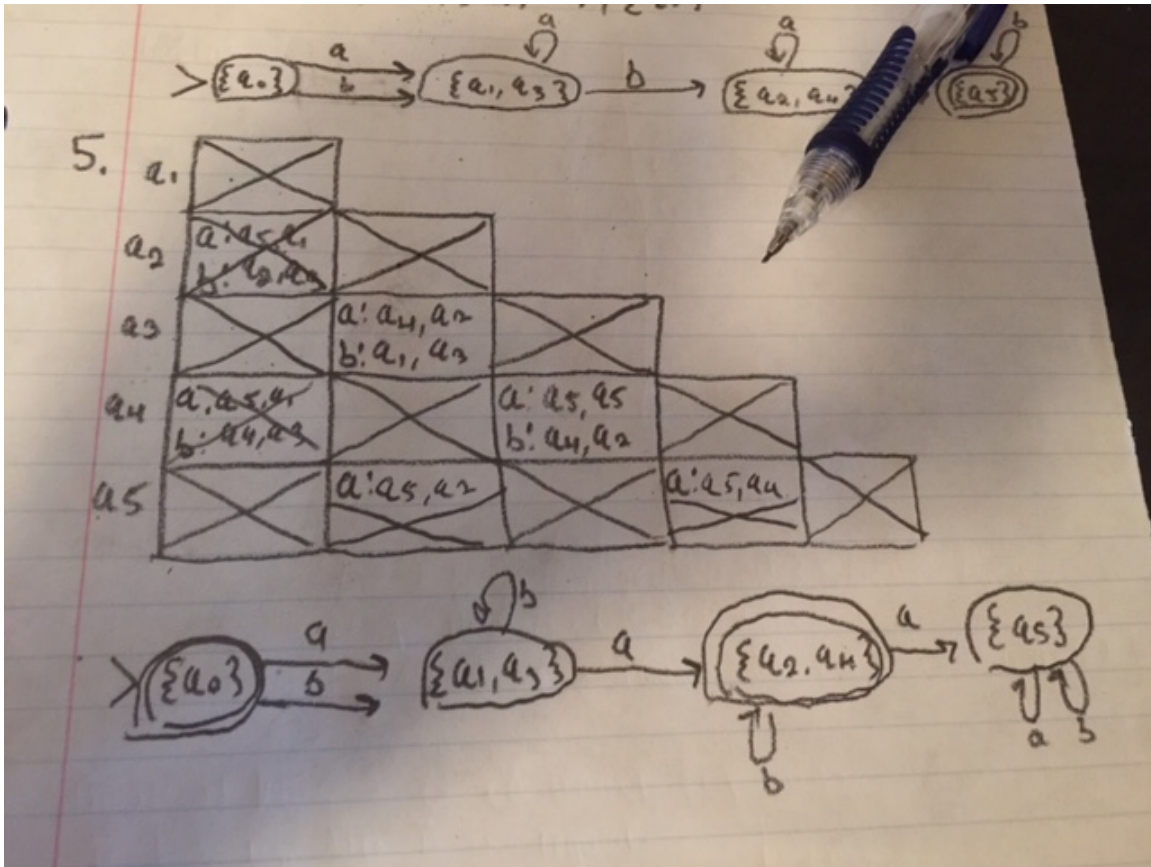 a a b
> {a0} b {a1, a3} b {a2, a4 {a5}
5.
a1
a2 a: a5, a1
b: a2, a3
a3 a: a4, a2
b: a1, a3
a4 a: a5, a1 a: a5, a5
b: a4, a3 b: a4, a2
a5 a: a5, a2 a: a5, a4
b
a a
> {a0} b {a1, a3} a {a2, a4} {a5}
b a b